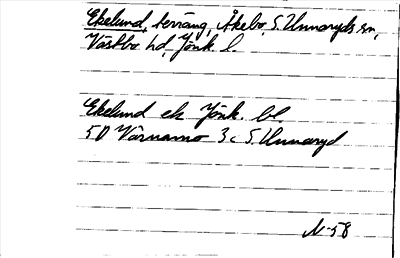 Ekelund, terräng, Åkebo, S. Unnaryds sn,
Västbo hd, Jönk. l.
Ekelund ek Jönk. bl
5D Värnamo 3c S. Unnaryd
N-58